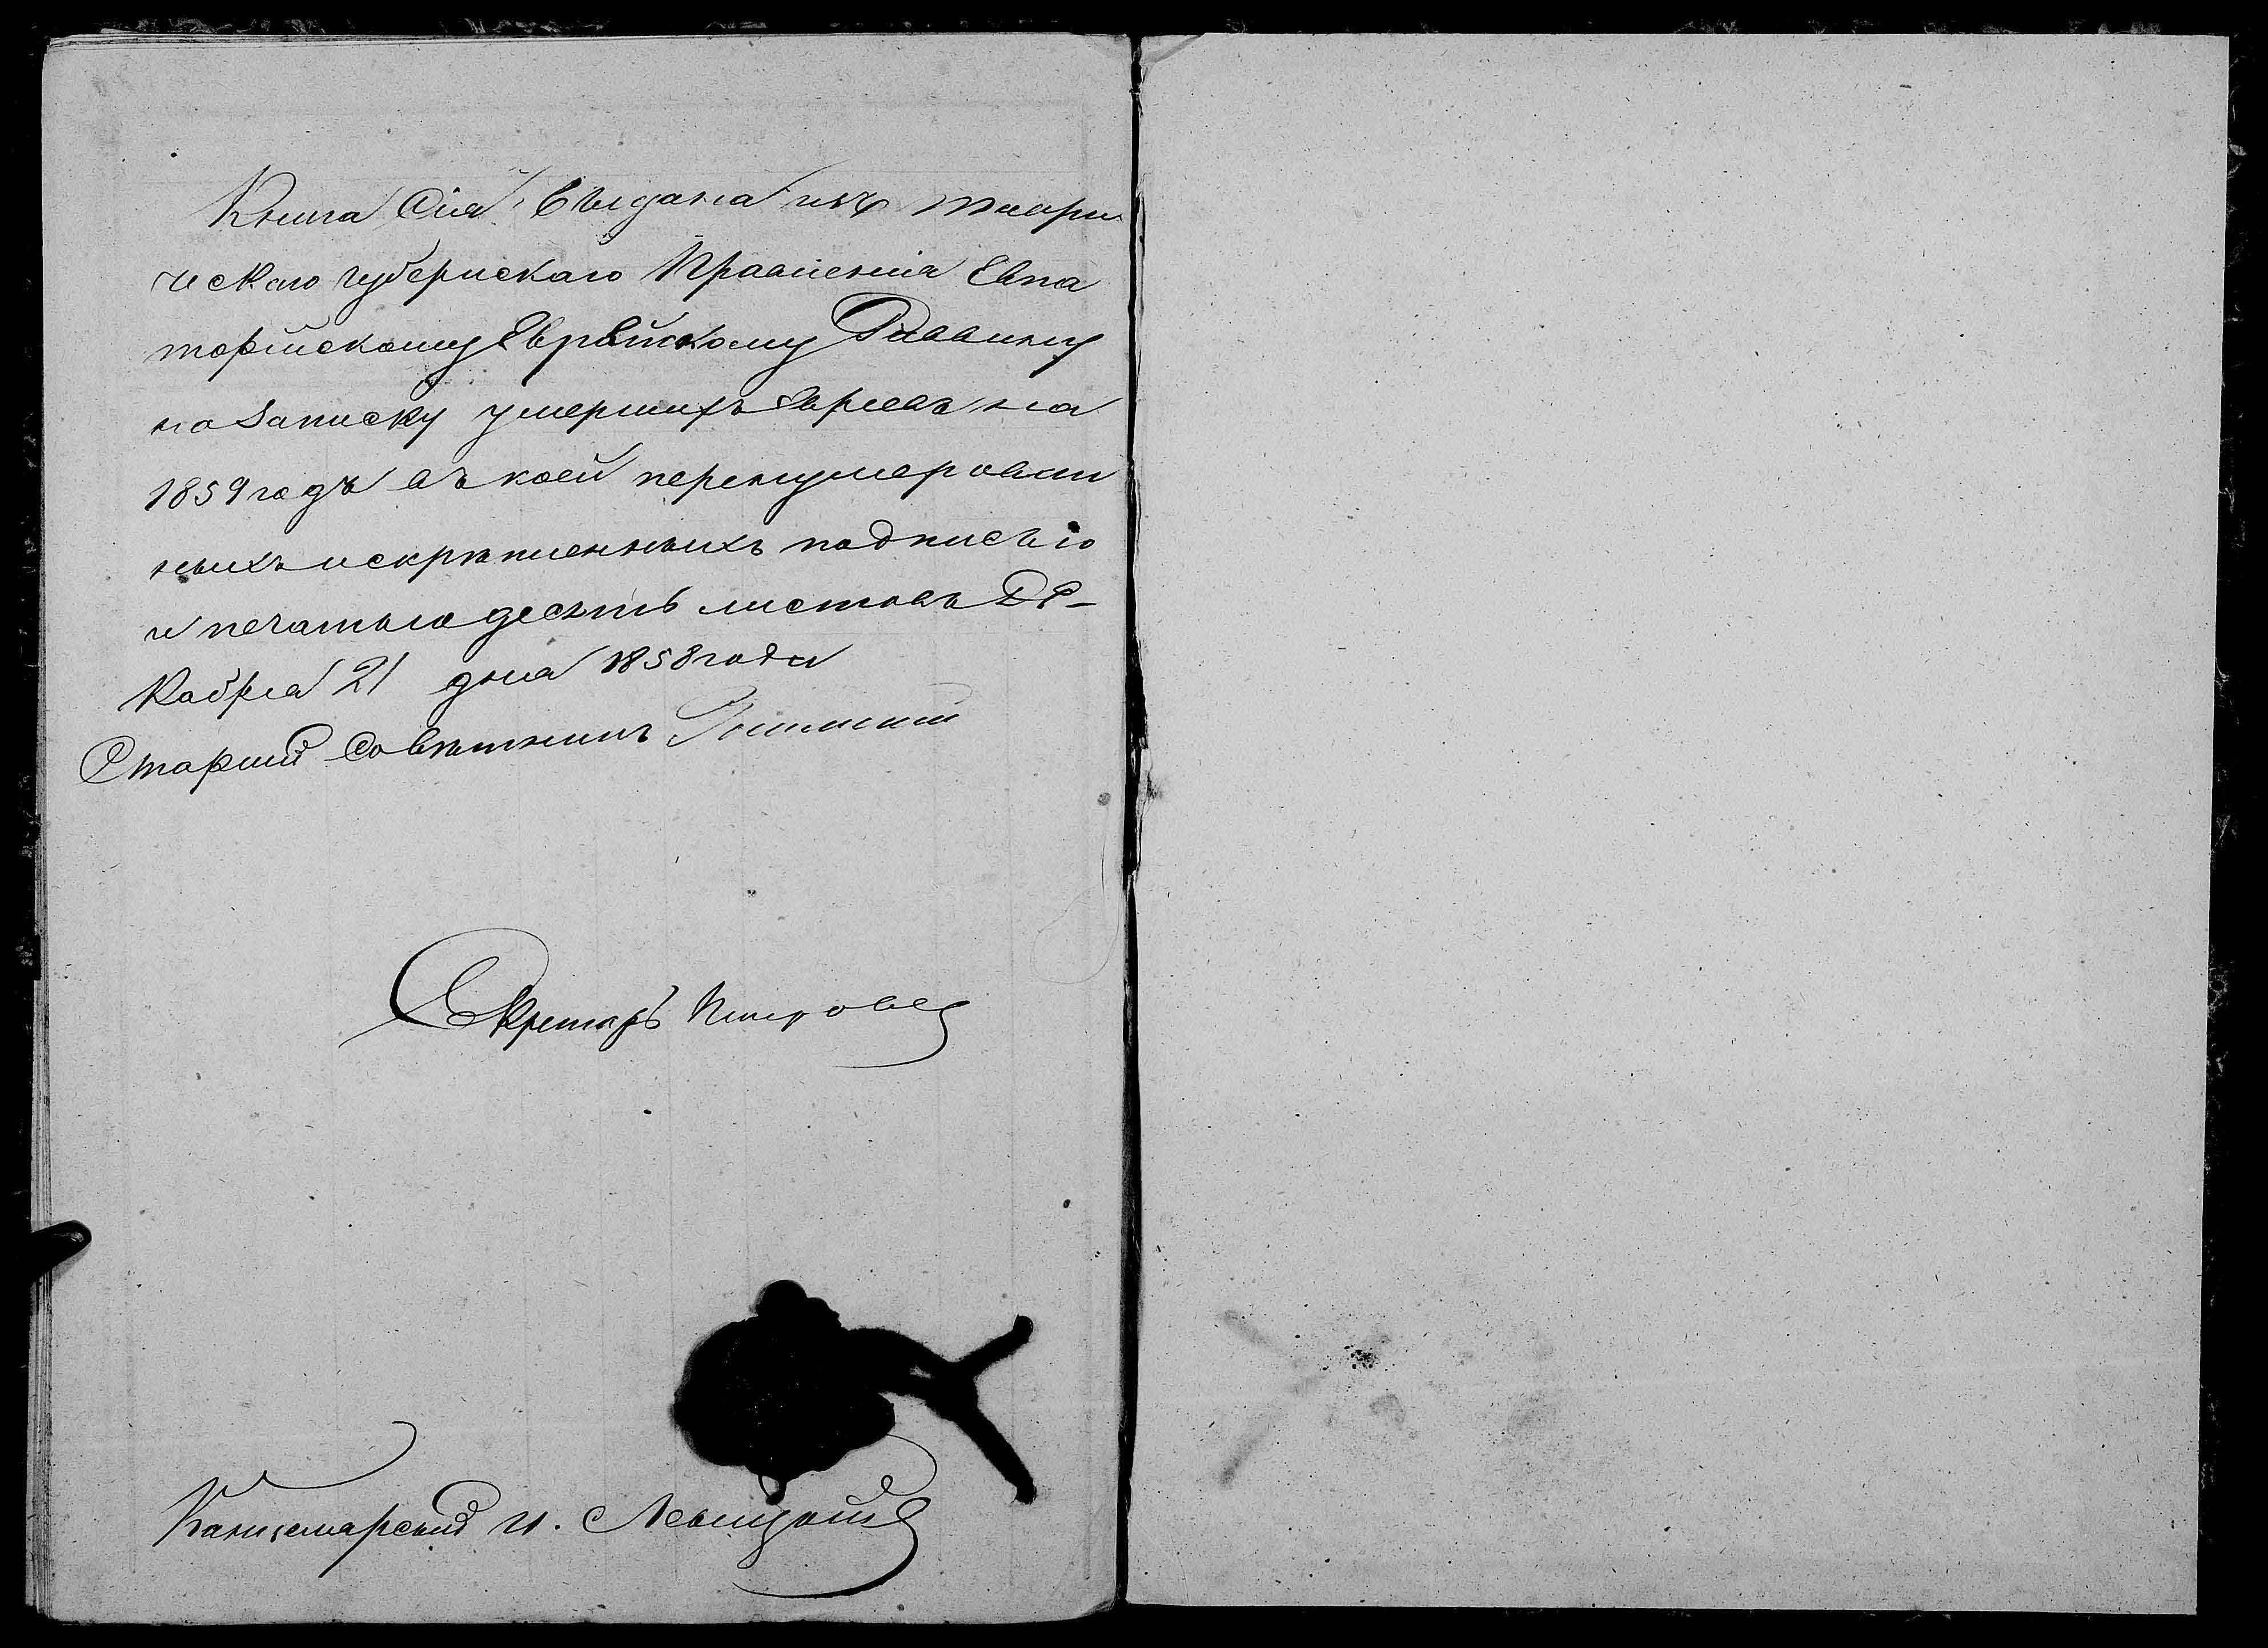 Книга Сія Выдана изъ Таври
ческаго губернскаго Правленія Евпа
торійскому Еврейскому Раввину
на записку умершихъ Евреевъ на
1859 годъ въ коей перенумерован
ныхъ и скрѣпленныхъ подписью
и печатью десять листовъ ДЕ-
Кабря 21 дня 1858 года
Старшій Совѣтникъ
Секретарь
Канцелярскій И. Левицкій